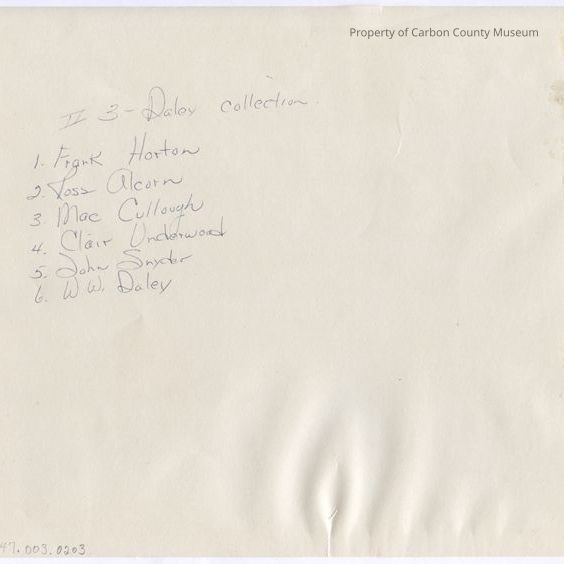 Property of Carbon County Museum
II 3 - Daley collection.
1. Frank Horton
2. Ross Alcorn
3. Mac Cullough
4. Clair Underwood
5. John Snyder
6. W.W. Daley
47.003.0203